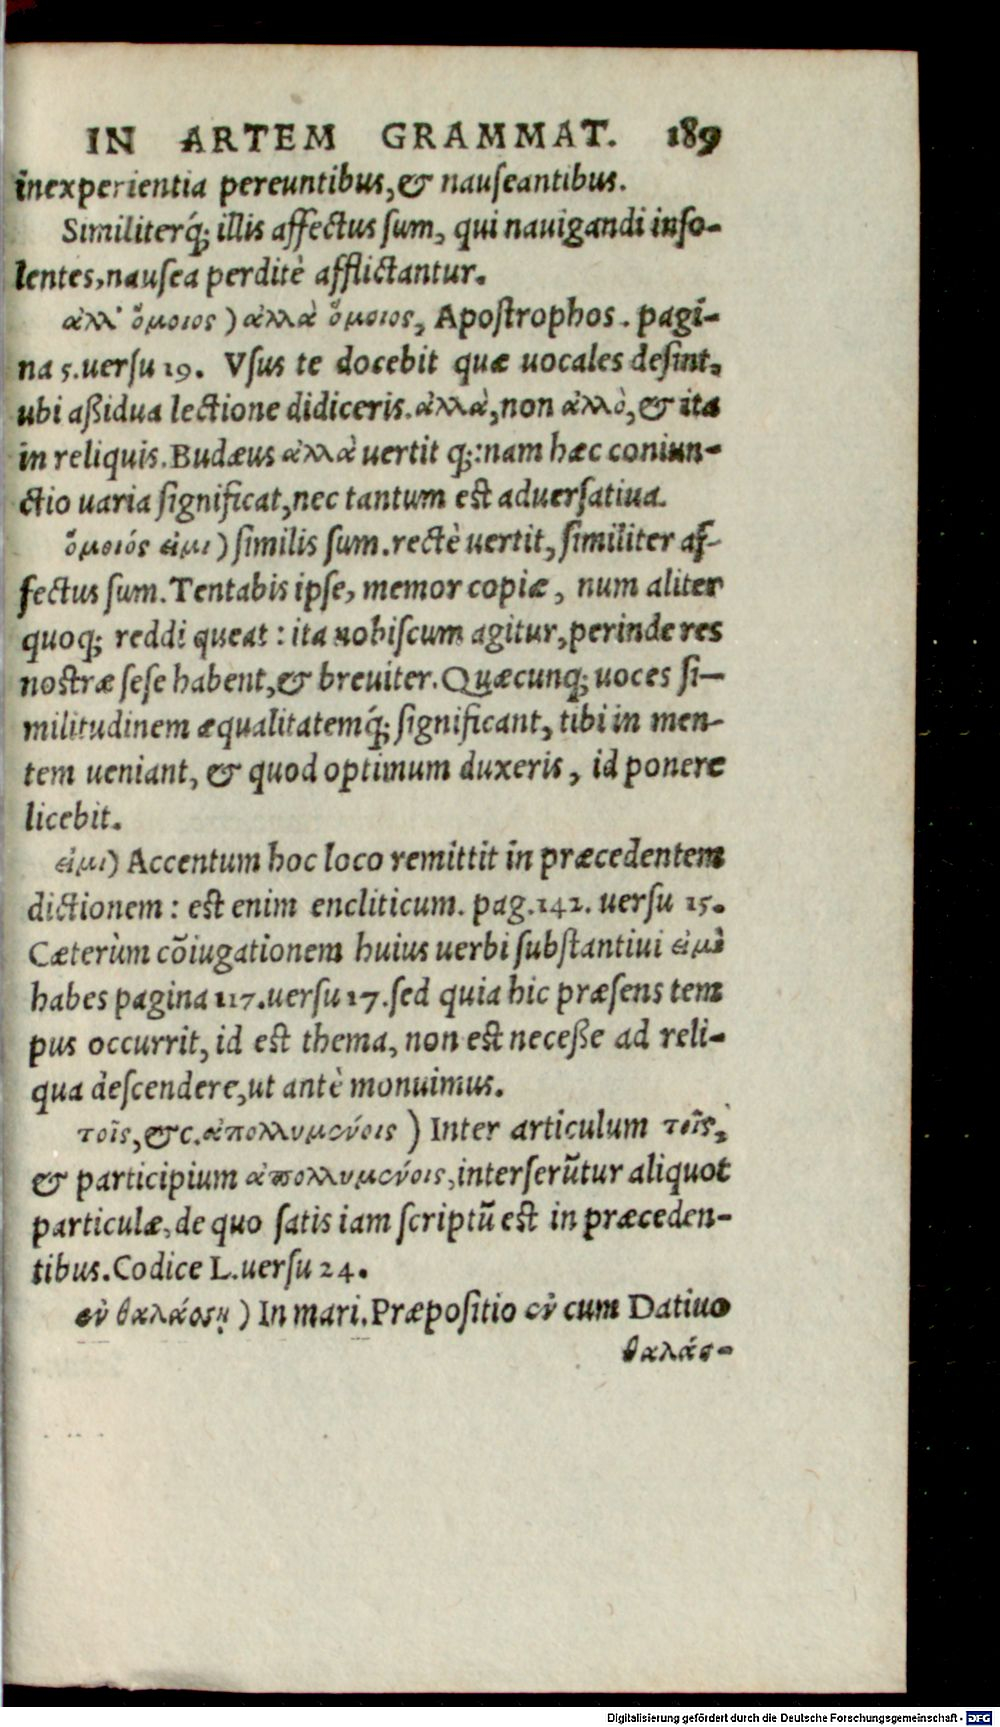 IN ARTEM GRAMMAT. 189
inexperientia pereuntibus, & nauseantibus.
Similiterq́; illis affectus sum, qui nauigandi inso-
lentes, nausea perditè afflictantur.
ἀλλ' ὅμοιος ) ἀλλὰ ὅμοιος, Apostrophos. pagi-
na 5. uersu 19. Vsus te docebit quæ uocales desint,
ubi aßidua lectione didiceris. ἀλλὰ, non ἀλλὸ, & ita
in reliquis. Budæus ἀλλὰ uertit q;: nam hæc coniun-
ctio uaria significat, nec tantum est aduersatiua.
ὅμοιός εἰμι ) similis sum. rectè uertit, similiter af-
fectus sum. Tentabis ipse, memor copiæ, num aliter
quoq; reddi queat : ita nobiscum agitur, perinde res
nostræ sese habent, & breuiter. Quæcunq; uoces si-
militudinem æqualitatemq́; significant, tibi in men-
tem ueniant, & quod optimum duxeris, id ponere
licebit.
εἰμι) Accentum hoc loco remittit in præcedentem
dictionem : est enim encliticum. pag. 142. uersu 15.
Cæterùm cõiugationem huius uerbi substantiui εἰμὶ
habes pagina 117. uersu 17. sed quia hic præsens tem
pus occurrit, id est thema, non est neceße ad reli-
qua descendere, ut antè monuimus.
τοῖς, &c. ἀπολλυμένοις ) Inter articulum τοῖς,
& participium ἀπολλυμένοις, interserũtur aliquot
particulæ, de quo satis iam scriptũ est in præceden-
tibus. Codice L. uersu 24.
ἐν θαλάσῃ ) In mari. Præpositio ἐν cum Datiuo
θαλάσ-
Digitalisierung gefördert durch die Deutsche Forschungsgemeinschaft - DFG